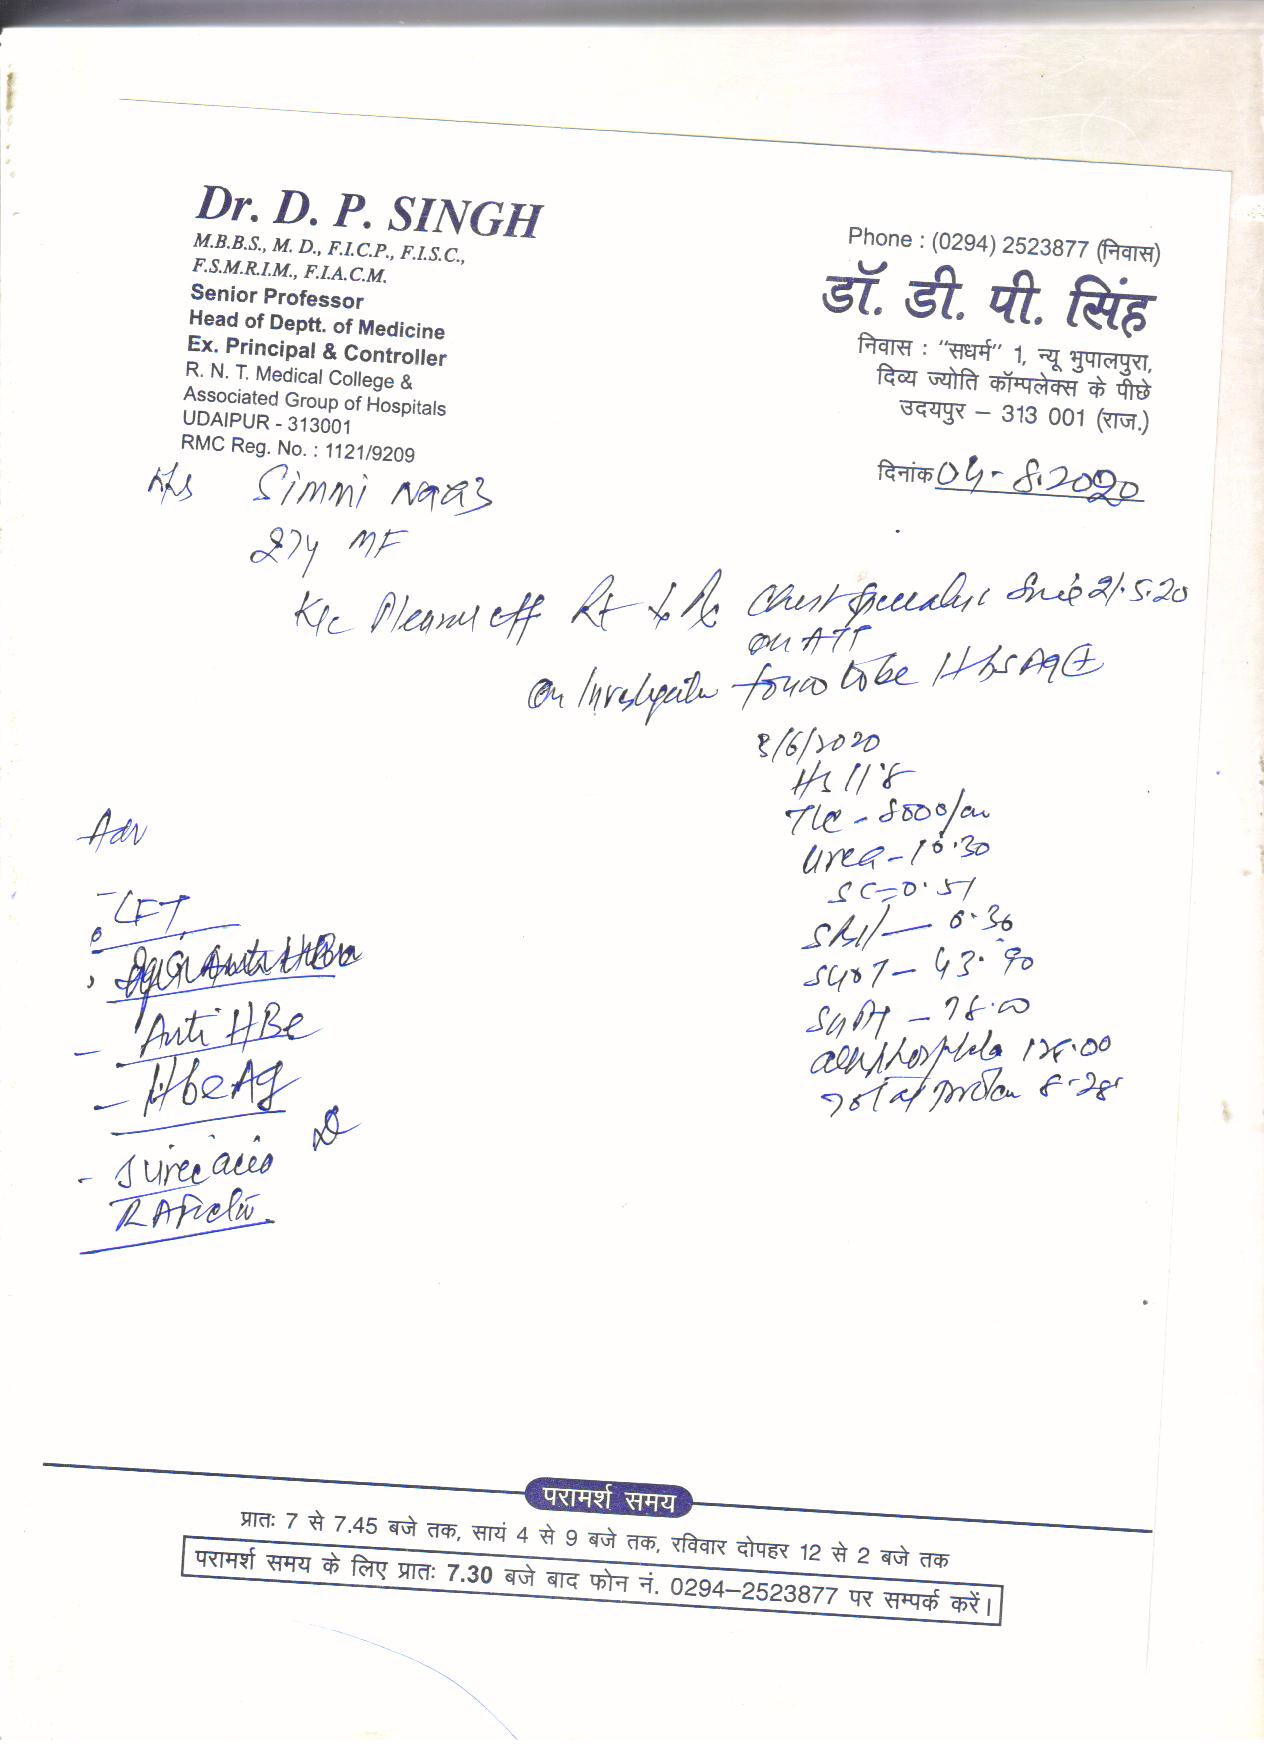 Dr. D. P. SINGH
M.B.B.S., M. D., F.I.C.P., F.I.S.C.,
F.S.M.R.I.M., F.I.A.C.M.
Senior Professor
Head of Deptt. of Medicine
Ex. Principal & Controller
R. N. T. Medical College &
Associated Group of Hospitals
UDAIPUR - 313001
RMC Reg. No. : 1121/9209
Phone : (0294) 2523877 (निवास)
डॉ. डी. पी. सिंह
निवास : "सधर्म" 1, न्यू भुपालपुरा,
दिव्य ज्योति कॉम्पलेक्स के पीछे
उदयपुर – 313 001 (राज.)
दिनांक 04-8.2020
Simmi
27y MF
K/c Pleural eff Rt Chest 21.5.20
on ATT
on Investigation found to be HbsAg +
3/6/2020
Hb 11.8
TLC - 8000/
Urea - 16.30
SC = 0.51
SBil — 0.36
SGOT - 43.90
SGPT - 78.00
00
Total protein 8.28
Adv
- LFT
Anti HBe
- HbeAg
- S uric acid
RA Factor
परामर्श समय
प्रातः 7 से 7.45 बजे तक, सायं 4 से 9 बजे तक, रविवार दोपहर 12 से 2 बजे तक
परामर्श समय के लिए प्रातः 7.30 बजे बाद फोन नं. 0294–2523877 पर सम्पर्क करें।